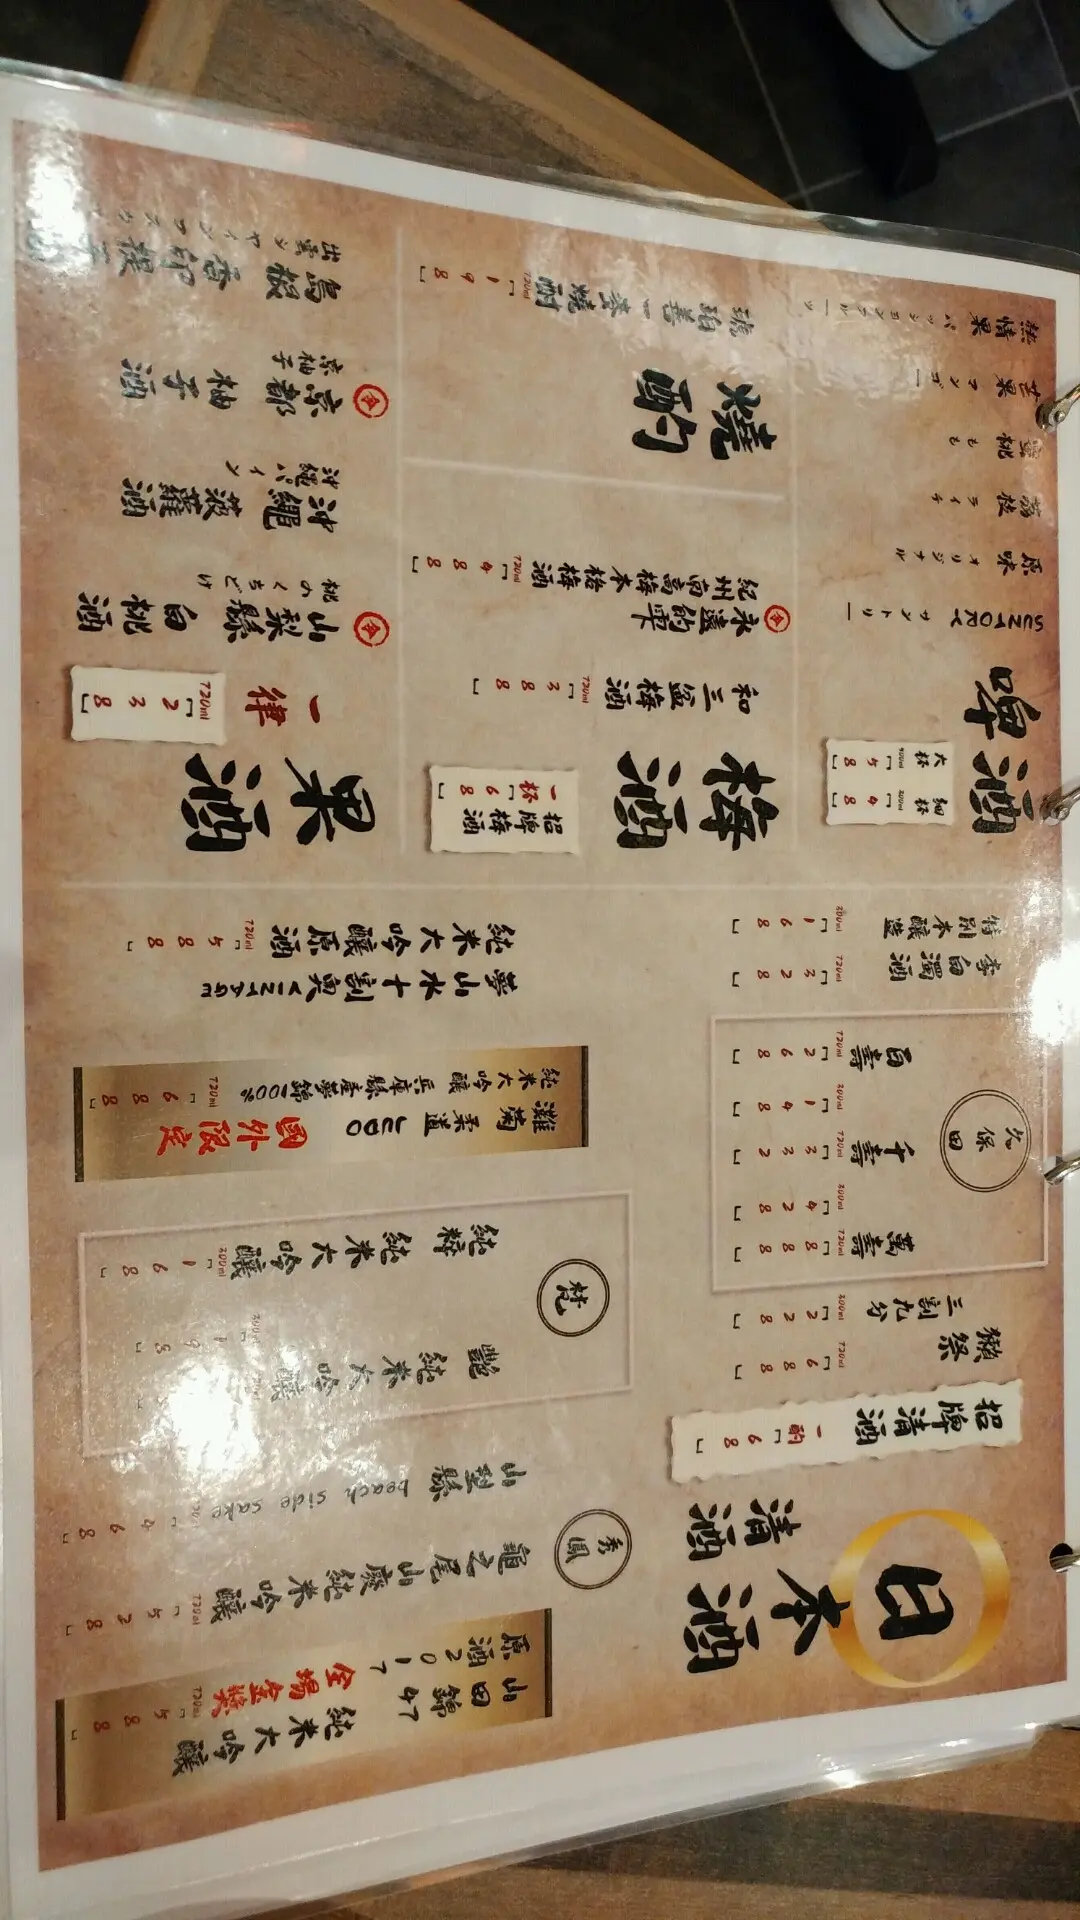 日本酒
清酒
招牌清酒 一酌「68」
獺祭
三割九分
300ml「228」
720ml「688」
久保田
萬壽
300ml「428」
720ml「888」
千壽
300ml「148」
720ml「332」
百壽
720ml「268」
李白濁酒
720ml「328」
特別本釀造
300ml「168」
山田錦47
原酒2017
純米大吟釀
全場金獎
720ml「588」
秀鳳
龜之尾山廢純米吟釀
720ml「528」
山型縣 peach side sake
「468」
梵
艷
純米大吟釀
純粹
純米大吟釀
300ml「168」
灘菊
柔道
純米大吟釀 兵庫縣產夢錦100%
國外限定
720ml「688」
夢山水十割奧VINTAGE
純米大吟釀原酒
720ml「588」
啤酒
細杯 300ml「48」
大杯 500ml「58」
SUNTORY サントリー
原味 オリジナル
荔枝 ライチ
蜜桃 もも
芒果 マンゴー
熱情果 パッションフルーツ
梅酒
招牌梅酒
一杯「68」
和三盆梅酒
720ml「388」
永遠的雫
紀州南高梅本格梅酒
720ml「488」
燒酌
琥珀善一麥燒酎
720ml「198」
果酒
一律
720ml「238」
山梨縣白桃酒
桃のくちどけ
沖繩菠蘿酒
沖縄パイン
京都柚子酒
京柚子
島根香印提子